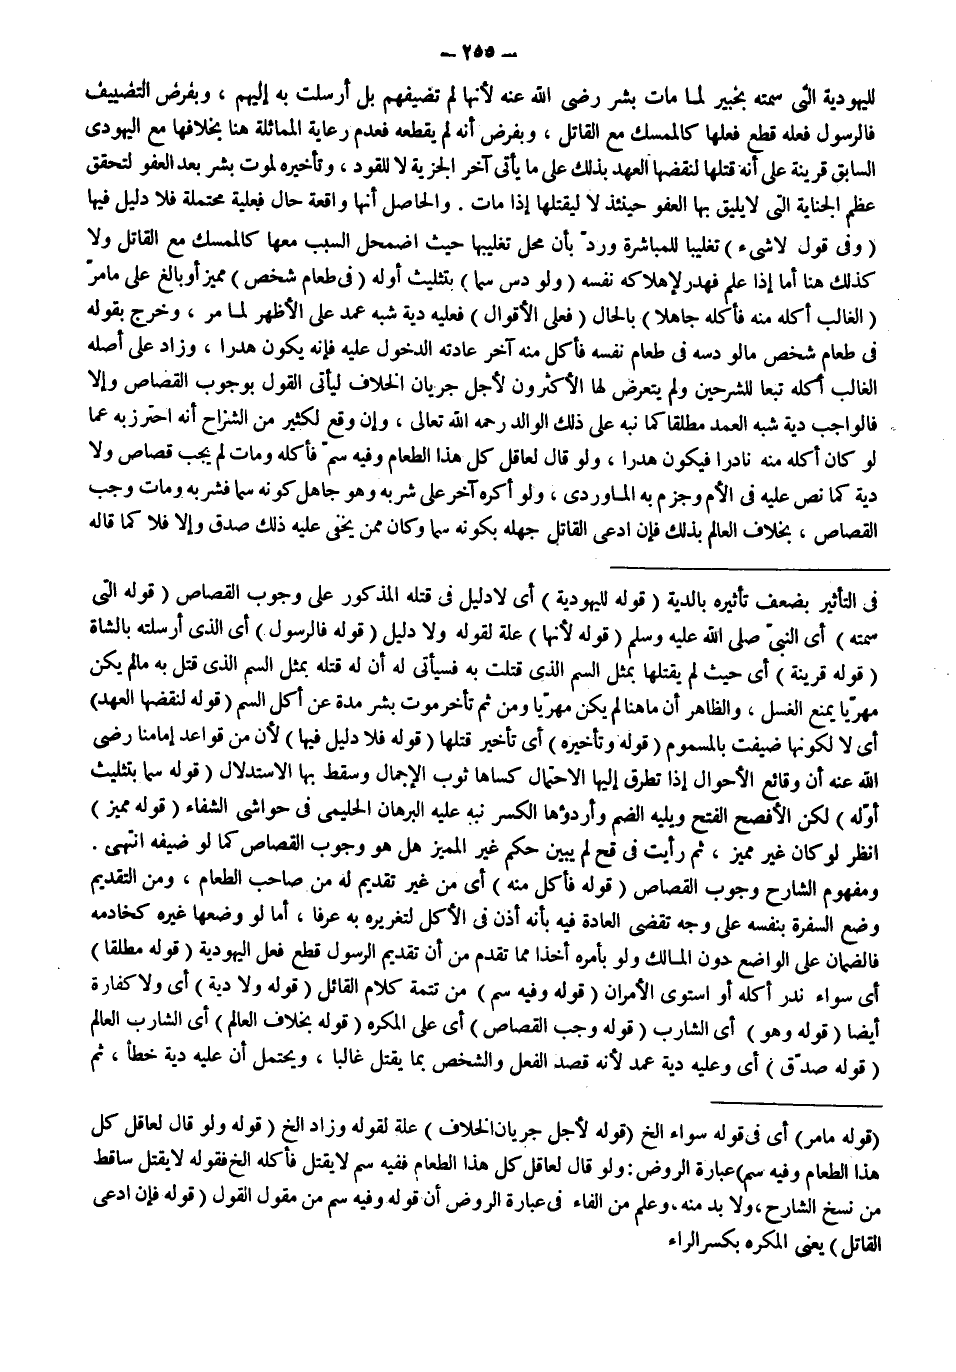 — ٢٥٥ —
لليهودية التى سمته بخيبر لما مات بشر رضى الله عنه لأنها لم تضيفهم بل أرسلت به إليهم ، وبفرض التضييف
فالرسول فعله قطع فعلها كالممسك مع القاتل ، وبفرض أنه لم يقطعه فعدم رعاية المماثلة هنا بخلافها مع اليهودى
السابق قرينة على أنه قتلها لنقضها العهد بذلك على ما يأتى آخر الجزية لا للقود ، وتأخيره لموت بشر بعد العفو لتحقق
عظم الجناية التى لايليق بها العفو حينئذ لا ليقتلها إذا مات . والحاصل أنها واقعة حال فعلية محتملة فلا دليل فيها
( وفى قول لاشىء ) تغليبا للمباشرة وردّ بأن محل تغليبها حيث اضمحل السبب معها كالممسك مع القاتل ولا
كذلك هنا أما إذا علم فهدر لإهلاكه نفسه ( ولو دس سما ) بتثليث أوله ( فى طعام شخص ) مميز أو بالغ على مامرّ
( الغالب أكله منه فأكله جاهلا ) بالحال ( فعلى الأقوال ) فعليه دية شبه عمد على الأظهر لما مر ، وخرج بقوله
فى طعام شخص مالو دسه فى طعام نفسه فأكل منه آخر عادته الدخول عليه فإنه يكون هدرا ، وزاد على أصله
الغالب أكله تبعا للشرحين ولم يتعرض لها الأكثرون لأجل جريان الخلاف ليأتى القول بوجوب القصاص وإلا
فالواجب دية شبه العمد مطلقا كما نبه على ذلك الوالد رحمه الله تعالى ، وإن وقع لكثير من الشراح أنه احترز به عما
لو كان أكله منه نادرا فيكون هدرا ، ولو قال لعاقل كل هذا الطعام وفيه سمّ فأكله ومات لم يجب قصاص ولا
دية كما نص عليه فى الأم وجزم به الماوردى ، ولو أكره آخر على شربه وهو جاهل كونه سما فشربه ومات وجب
القصاص ، بخلاف العالم بذلك فإن ادعى القاتل جهله بكونه سما وكان ممن يخفى عليه ذلك صدق وإلا فلا كما قاله
فى التأثير بضعف تأثيره بالدية ( قوله لليهودية ) أى لادليل فى قتله المذكور على وجوب القصاص ( قوله التى
سمته ) أى النبىّ صلى الله عليه وسلم ( قوله لأنها ) علة لقوله ولا دليل ( قوله فالرسول ) أى الذى أرسلته بالشاة
( قوله قرينة ) أى حيث لم يقتلها بمثل السم الذى قتلت به فسيأتى له أن له قتله بمثل السم الذى قتل به مالم يكن
مهريّا يمنع الغسل ، والظاهر أن ماهنا لم يكن مهريّا ومن ثم تأخر موت بشر مدة عن أكل السم ( قوله لنقضها العهد)
أى لا لكونها ضيفت بالمسموم ( قوله وتأخيره ) أى تأخير قتلها ( قوله فلا دليل فيها ) لأن من قواعد إمامنا رضى
الله عنه أن وقائع الأحوال إذا تطرق إليها الاحتمال كساها ثوب الإجمال وسقط بها الاستدلال ( قوله سما بتثليث
أوّله ) لكن الأفصح الفتح ويليه الضم وأردؤها الكسر نبه عليه البرهان الحليمى فى حواشى الشفاء ( قوله مميز )
انظر لو كان غير مميز ، ثم رأيت فى قح لم يبين حكم غير المميز هل هو وجوب القصاص كما لو ضيفه انتهى .
ومفهوم الشارح وجوب القصاص ( قوله فأكل منه ) أى من غير تقديم له من صاحب الطعام ، ومن التقديم
وضع السفرة بنفسه على وجه تقضى العادة فيه بأنه أذن فى الأكل لتغريره به عرفا ، أما لو وضعها غيره كخادمه
فالضمان على الواضع دون المالك ولو بأمره أخذا مما تقدم من أن تقديم الرسول قطع فعل اليهودية ( قوله مطلقا )
أى سواء ندر أكله أو استوى الأمران ( قوله وفيه سم ) من تتمة كلام القائل ( قوله ولا دية ) أى ولا كفارة
أيضا ( قوله وهو ) أى الشارب ( قوله وجب القصاص ) أى على المكره ( قوله بخلاف العالم ) أى الشارب العالم
( قوله صدّق ) أى وعليه دية عمد لأنه قصد الفعل والشخص بما يقتل غالبا ، ويحتمل أن عليه دية خطأ ، ثم
(قوله مامر) أى فى قوله سواء الخ (قوله لأجل جريان الخلاف ) علة لقوله وزاد الخ ( قوله ولو قال لعاقل كل
هذا الطعام وفيه سم) عبارة الروض : ولو قال لعاقل كل هذا الطعام ففيه سم لايقتل فأكله الخ فقوله لايقتل ساقط
من نسخ الشارح ، ولا بد منه ، وعلم من الفاء فى عبارة الروض أن قوله وفيه سم من مقول القول ( قوله فإن ادعى
القاتل ) يعنى المكره بكسر الراء